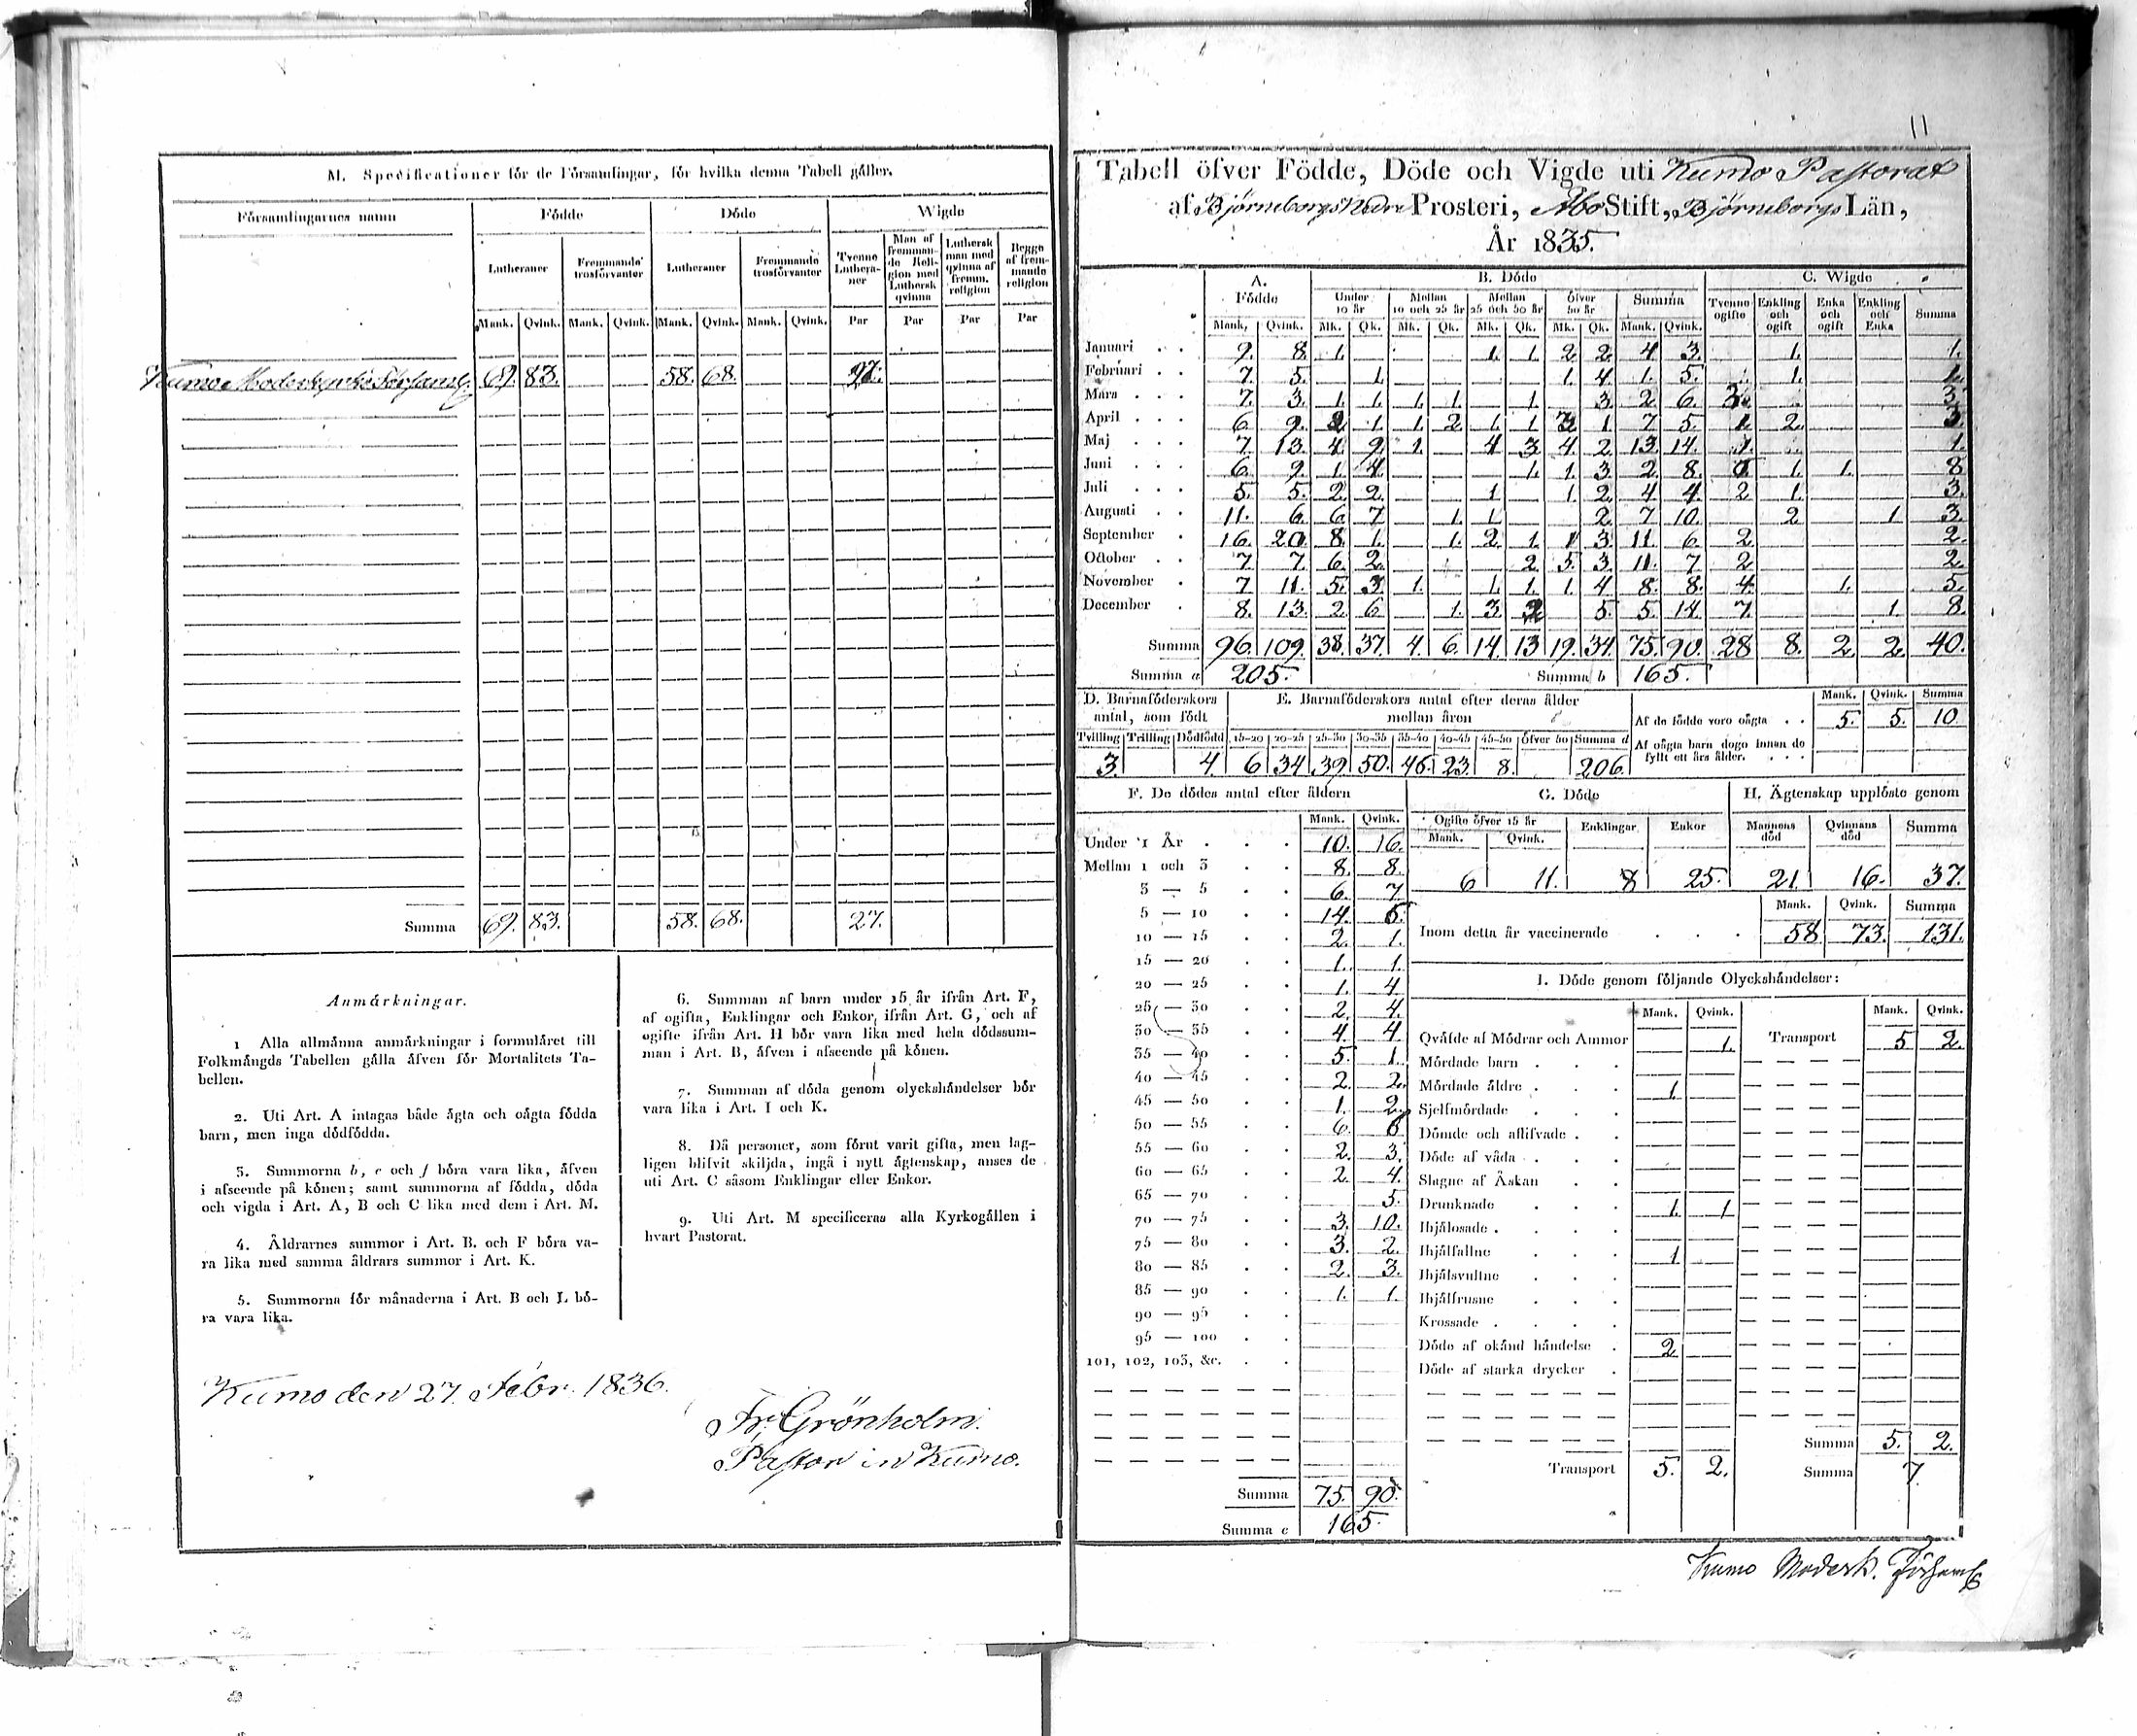 M. Specificationer för de Församlingar, för hvilka denna Tabell gäller.
Församlingarnes namn | Födde | Döde | Wigde
Lutheraner | Fremmande trosförvanter | Lutheraner | Fremmande trosförvanter | Tvenne Lutheraner | Man af fremmande Religion med Luthersk qvinna | Luthersk man med qvinna af fremm. religion | Begge af fremmande religion
Mank. | Qvink. | Mank. | Qvink. | Mank. | Qvink. | Mank. | Qvink. | Par | Par | Par | Par
Kumo Moderkyrko Församl. 69. 83. 58. 68. 27.
Summa 69. 83. 58. 68. 27.
Anmärkningar.
1 Alla allmänna anmärkningar i formuläret till
Folkmängds Tabellen gälla äfven för Mortalitets Ta-
bellen.
2. Uti Art. A intagas både ägta och oägta födda
barn, men inga dödfödda.
3. Summorna b, c och f böra vara lika, äfven
i afseende på könen; samt summorna af födda, döda
och vigda i Art. A, B och C lika med dem i Art. M.
4. Åldrarnes summor i Art. B. och F böra va-
ra lika med samma åldrars summor i Art. K.
5. Summorna för månaderna i Art. B och L bö-
ra vara lika.
6. Summan af barn under 15 år ifrån Art. F,
af ogifta, Enklingar och Enkor, ifrån Art. G, och af
ogifte ifrån Art. H bör vara lika med hela dödssum-
man i Art. B, äfven i afseende på könen.
7. Summan af döda genom olyckshändelser bör
vara lika i Art. I och K.
8. Då personer, som förut varit gifta, men lag-
ligen blifvit skiljda, ingå i nytt ägtenskap, anses de
uti Art. C såsom Enklingar eller Enkor.
9. Uti Art. M specificeras alla Kyrkogällen i
hvart Pastorat.
Kumo den 27. Febr. 1836.
Fr. Grönholm.
Pastor in Kumo.
11
Tabell öfver Födde, Döde och Vigde uti Kumo Pastorat
af Björneborgs Nedre Prosteri, Åbo Stift, Björneborgs Län,
År 1835.
A. Födde | B. Döde | C. Wigde
Under 10 år | Mellan 10 och 25 år | Mellan 25 och 50 år | Öfver 50 år | Summa | Tvenne ogifte | Enkling och ogift | Enka och ogift | Enkling och Enka | Summa
Mank. | Qvink. | Mk. | Qk. | Mk. | Qk. | Mk. | Qk. | Mk. | Qk. | Mank. | Qvink.
Januari 9. 8. 1. 1. 1. 2. 2. 4 3. 1. 1.
Februari 7. 5. 1. 1. 4. 1. 5. 1. 1.
Mars 7. 3. 1. 1. 1. 1. 1. 3. 2. 6. 3. 3.
April 6. 9. 2. 1. 1. 2 1. 1. 3 1 7 5. 1. 2. 3.
Maj 7. 13. 4. 9. 1. 4 3 4. 2. 13. 14. 1. 1.
Juni 6. 9. 1. 4. 1. 1. 3. 2. 8. 6. 1. 1. 8
Juli 5. 5. 2. 2. 1 1. 2. 4 4. 2 1. 3.
Augusti 11. 6. 6. 7 1. 1. 2. 7 10. 2 1 3.
September 16. 20. 8. 1. 1. 2. 1. 1 3. 11. 6. 2. 2.
October 7. 7. 6. 2. 2 5. 3. 11. 7 2 2.
November 7 11. 5. 3. 1. 1. 1. 1. 4 8. 8. 4. 1. 5.
December 8. 13. 2. 6. 1. 3. 2 5. 5. 14. 7. 1. 8.
Summa 96. 109. 38. 37. 4. 6. 14. 13 19. 34. 75. 90. 28 8. 2. 2. 40.
Summa a 205. Summa b 165.
D. Barnaföderskors antal, som födt | E. Barnaföderskors antal efter deras ålder mellan åren | Mank. | Qvink. | Summa
Af de födde voro oägta . . 5. 5. 10
Tvilling | Trilling | Dödfödd | 15-20 | 20-25 | 25-30 | 30-35 | 35-40 | 40-45 | 45-50 | Öfver 50 | Summa d
Af oägta barn dogo innan de fyllt ett års ålder.
3. 4. 6 34 39. 50. 46. 23. 8. 206.
F. De dödes antal efter åldern
Mank. Qvink.
Under 1 År 10. 16.
Mellan 1 och 3 8. 8.
3 — 5 6. 7.
5 — 10 14. 6.
10 — 15 2. 1.
15 — 20 1. 1.
20 — 25 1. 4
25 — 30 2. 4.
30 — 35 4. 4
35 — 40 5. 1.
40 — 45 2. 2.
45 — 50 1. 2.
50 — 55 6. 6
55 — 60 2. 3.
60 — 65 2. 4.
65 — 70 5.
70 — 75 3. 10.
75 — 80 3. 2.
80 — 85 2. 3.
85 — 90 1. 1.
90 — 95
95 — 100
101, 102, 103, &c.
Summa 75. 90.
Summa c 165.
G. Döde
Ogifte öfver 15 år | Enklingar | Enkor
Mank. | Qvink.
6 11. 8 25.
H. Ägtenskap upplöste genom
Mannens död | Qvinnans död | Summa
21. 16. 37.
Mank. Qvink. Summa
Inom detta år vaccinerade 58. 73. 131.
I. Döde genom följande Olyckshändelser:
Mank. Qvink. Mank. Qvink.
Qväfde af Mödrar och Ammor 1. Transport 5 2.
Mördade barn
Mördade äldre 1.
Sjelfmördade
Dömde och aflifvade
Döde af våda
Slagne af Åskan
Drunknade 1. 1
Ihjälosade
Ihjälfallne 1.
Ihjälsvultne
Ihjälfrusne
Krossade
Döde af okänd händelse 2
Döde af starka drycker
Summa 5. 2.
Transport 5. 2. Summa 7.
Kumo Moderk. Församl.